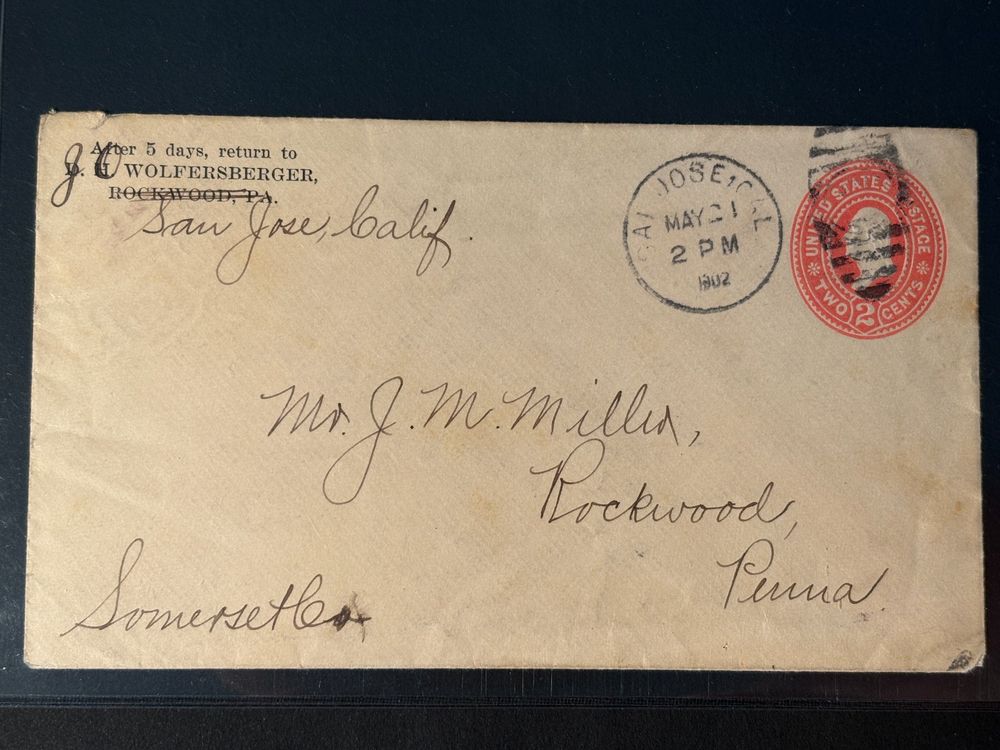 After 5 days, return to
J O
D. H. WOLFERSBERGER,
ROCKWOOD, PA.
San Jose, Calif.
SAN JOSE, CAL
MAY 21
2 PM
1902
UNITED STATES POSTAGE
TWO 2 CENTS
Mr. J. M. Miller,
Rockwood,
Penna.
Somerset Co.